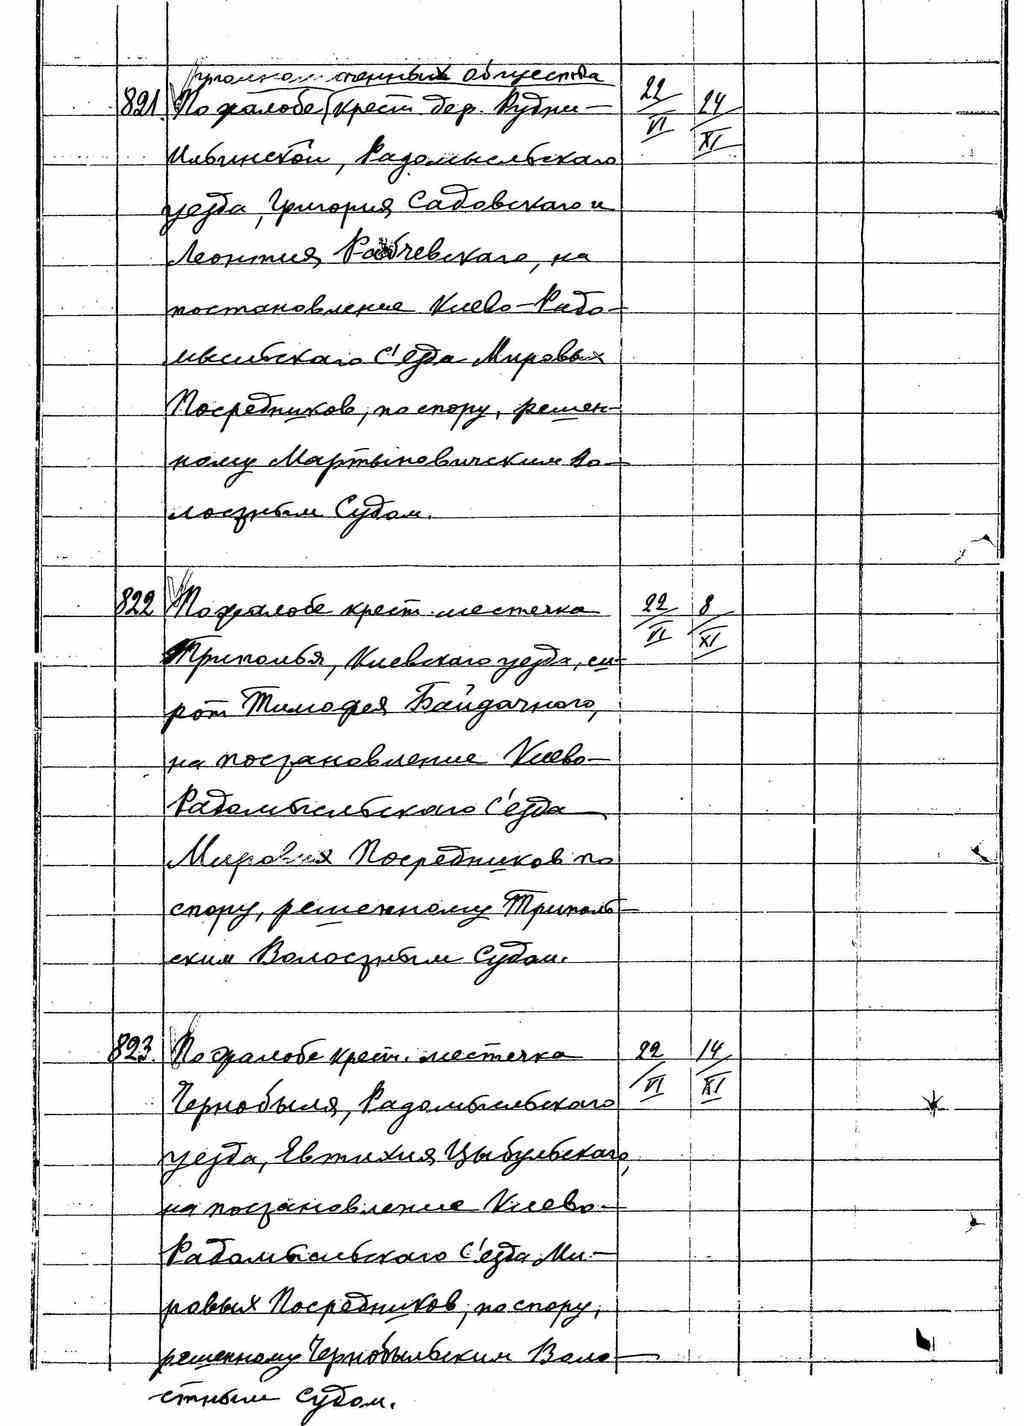 уполномоченных общества
821. По жалобе крест. дер. Рудни-
Ильинской, Радомысльскаго
уезда, Григория Садовскаго и
Леонтия, на
постановление Киево-Радо-
мысльскаго С'езда Мировых
Посредников, по спору, решен-
ному Мартыновичским Во-
лостным Судом.
22/VI 24/XI
822 По жалобе крест. местечка
Триполья, Киевскаго уезда, си-
рот Тимофея Байдачного,
на постановление Киево-
Радомысльскаго С'езда
Мировых Посредников по
спору, решенному Триполь-
ским Волостным Судом.
22/VI 8/XI
823. По жалобе крест. местечка
Чернобыля, Радомысльскаго
уезда, Евтихия Цыбульскаго,
на постановление Киево-
Радомысльскаго С'езда Ми-
ровых Посредников, по спору,
решенному Чернобыльским Воло-
стным Судом.
22/VI 14/XI